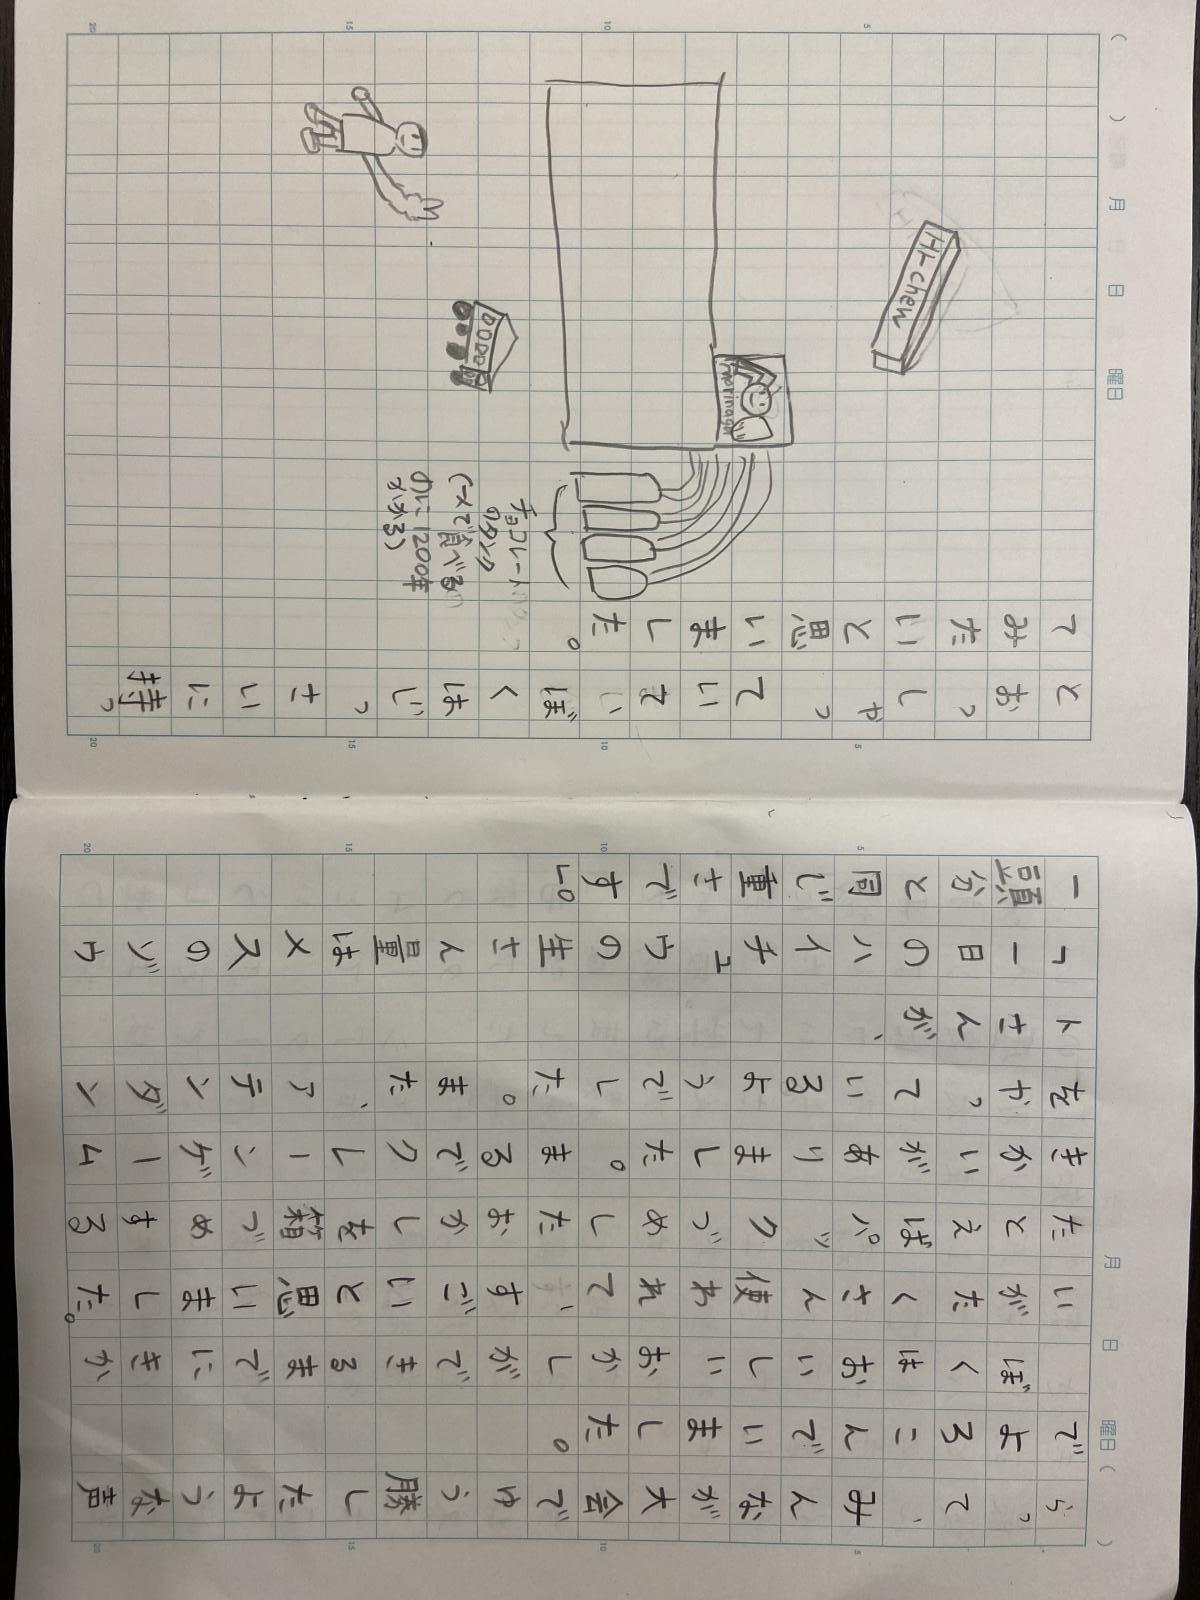 月 日 曜日( )
らって、みんなが大会でゆう勝したような声
でよろこんでいました。
ぼくはおいしいおかしができるまでにきか
いがたくさん使われて、すごいと思いました。
たとえばパックづめしたおかしを箱づめする
きかいがありました。まるでクレーンゲーム
をやっているようでした。また、アテンダン
トさんが、
「一日のハイチュウの生さん量はメスのゾウ
一頭分と同じ重さです」。
5
10
15
20
5
10
15
20
( ) 月 日 曜日
とおっしゃっていて、ぼくはじっさいに持っ
てみたいと思いました。
チョコレート
のタンク
(一人で食べる
のに1200年
かかる)
morinaga
HI-chew
5
10
15
20
5
10
15
20